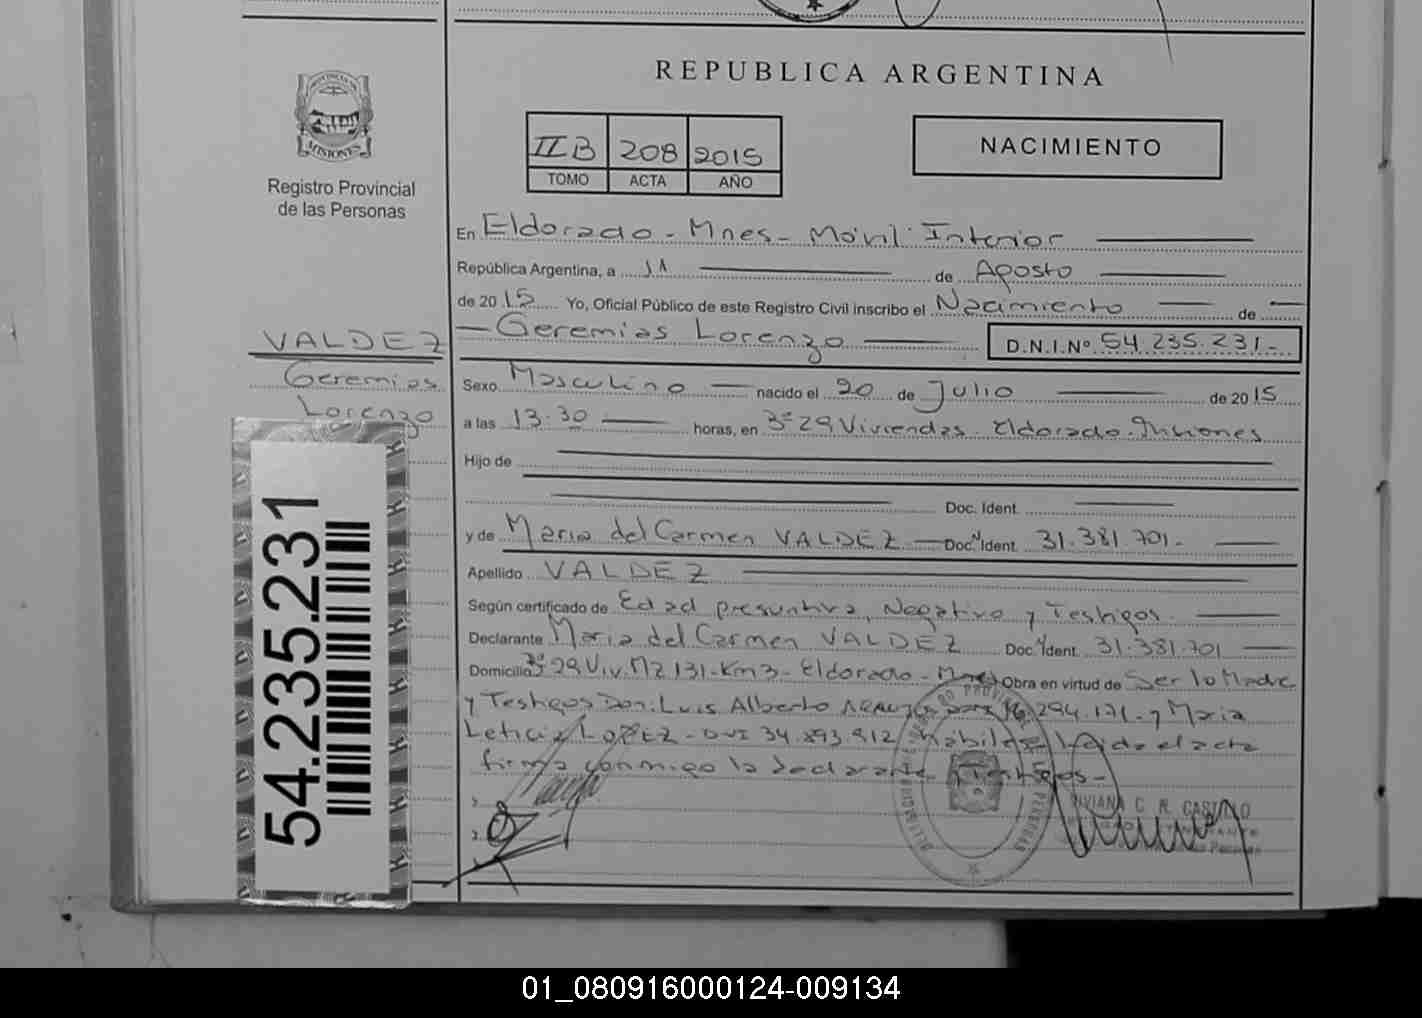 REPUBLICA ARGENTINA
PROVINCIA DE
MISIONES
Registro Provincial
de las Personas
IIB 208 2015
TOMO ACTA AÑO
NACIMIENTO
En Eldorado - Mnes - Móvil Interior
República Argentina, a 11 de Agosto
de 2015 Yo, Oficial Público de este Registro Civil inscribo el Nacimiento de
Geremias Lorenzo D.N.I.Nº 54.235.231-
VALDEZ
Geremias
Lorenzo
Sexo Masculino nacido el 20 de Julio de 2015
a las 13:30 horas, en 3º 29 Viviendas Eldorado Misiones
Hijo de
Doc. Ident.
y de Maria del Carmen VALDEZ Doc. Ident. 31.381.701-
Apellido VALDEZ
Según certificado de Edad presuntiva, Negativo y Testigos
Declarante Maria del Carmen VALDEZ Doc. Ident. 31.381.701
Domicilio 3º 29 Viv. Mz 131 - Km3 - Eldorado - Mnes Obra en virtud de Ser la Madre
y Testigos Don: Luis Alberto 16.294.171 - y Maria
Leticia LOPEZ - DNI 34.893.912 hábiles Leida el acta
firma conmigo la declarante y testigos-
VIVIANA C. R. CASTILLO
54.235.231
01_080916000124-009134